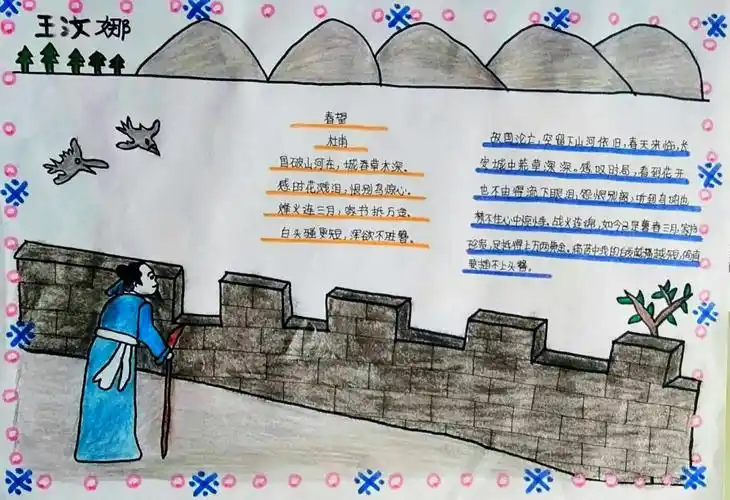 王汝娜
春望
杜甫
国破山河在，城春草木深。
感时花溅泪，恨别鸟惊心。
烽火连三月，家书抵万金。
白头搔更短，浑欲不胜簪。
故国沦亡，空留下山河依旧，春天来临，长
安城中荒草深深。感叹时局，看到花开
也不由得流下眼泪，怨恨别离，听到鸟鸣也
禁不住心中惊悸。战火连绵，如今已是暮春三月，家书
珍贵，足抵得上万两黄金。痛苦中我的白发越搔越短，简直
要插不上头簪。